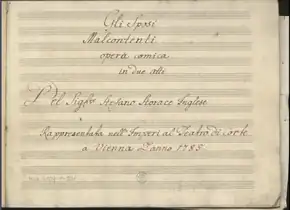 Gli Sposi
Malcontenti
opera comica
in due atti
Del Sigre Stefano Storace Inglese
Rappresentata nell'Imperial Teatro di Corte
a Vienna L'anno 1785